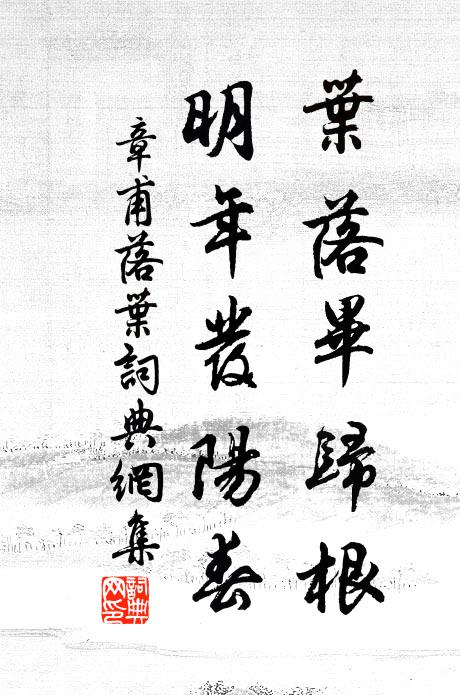 葉落畢歸根
明年發陽春
章甫落葉詞典網集
詞典网印